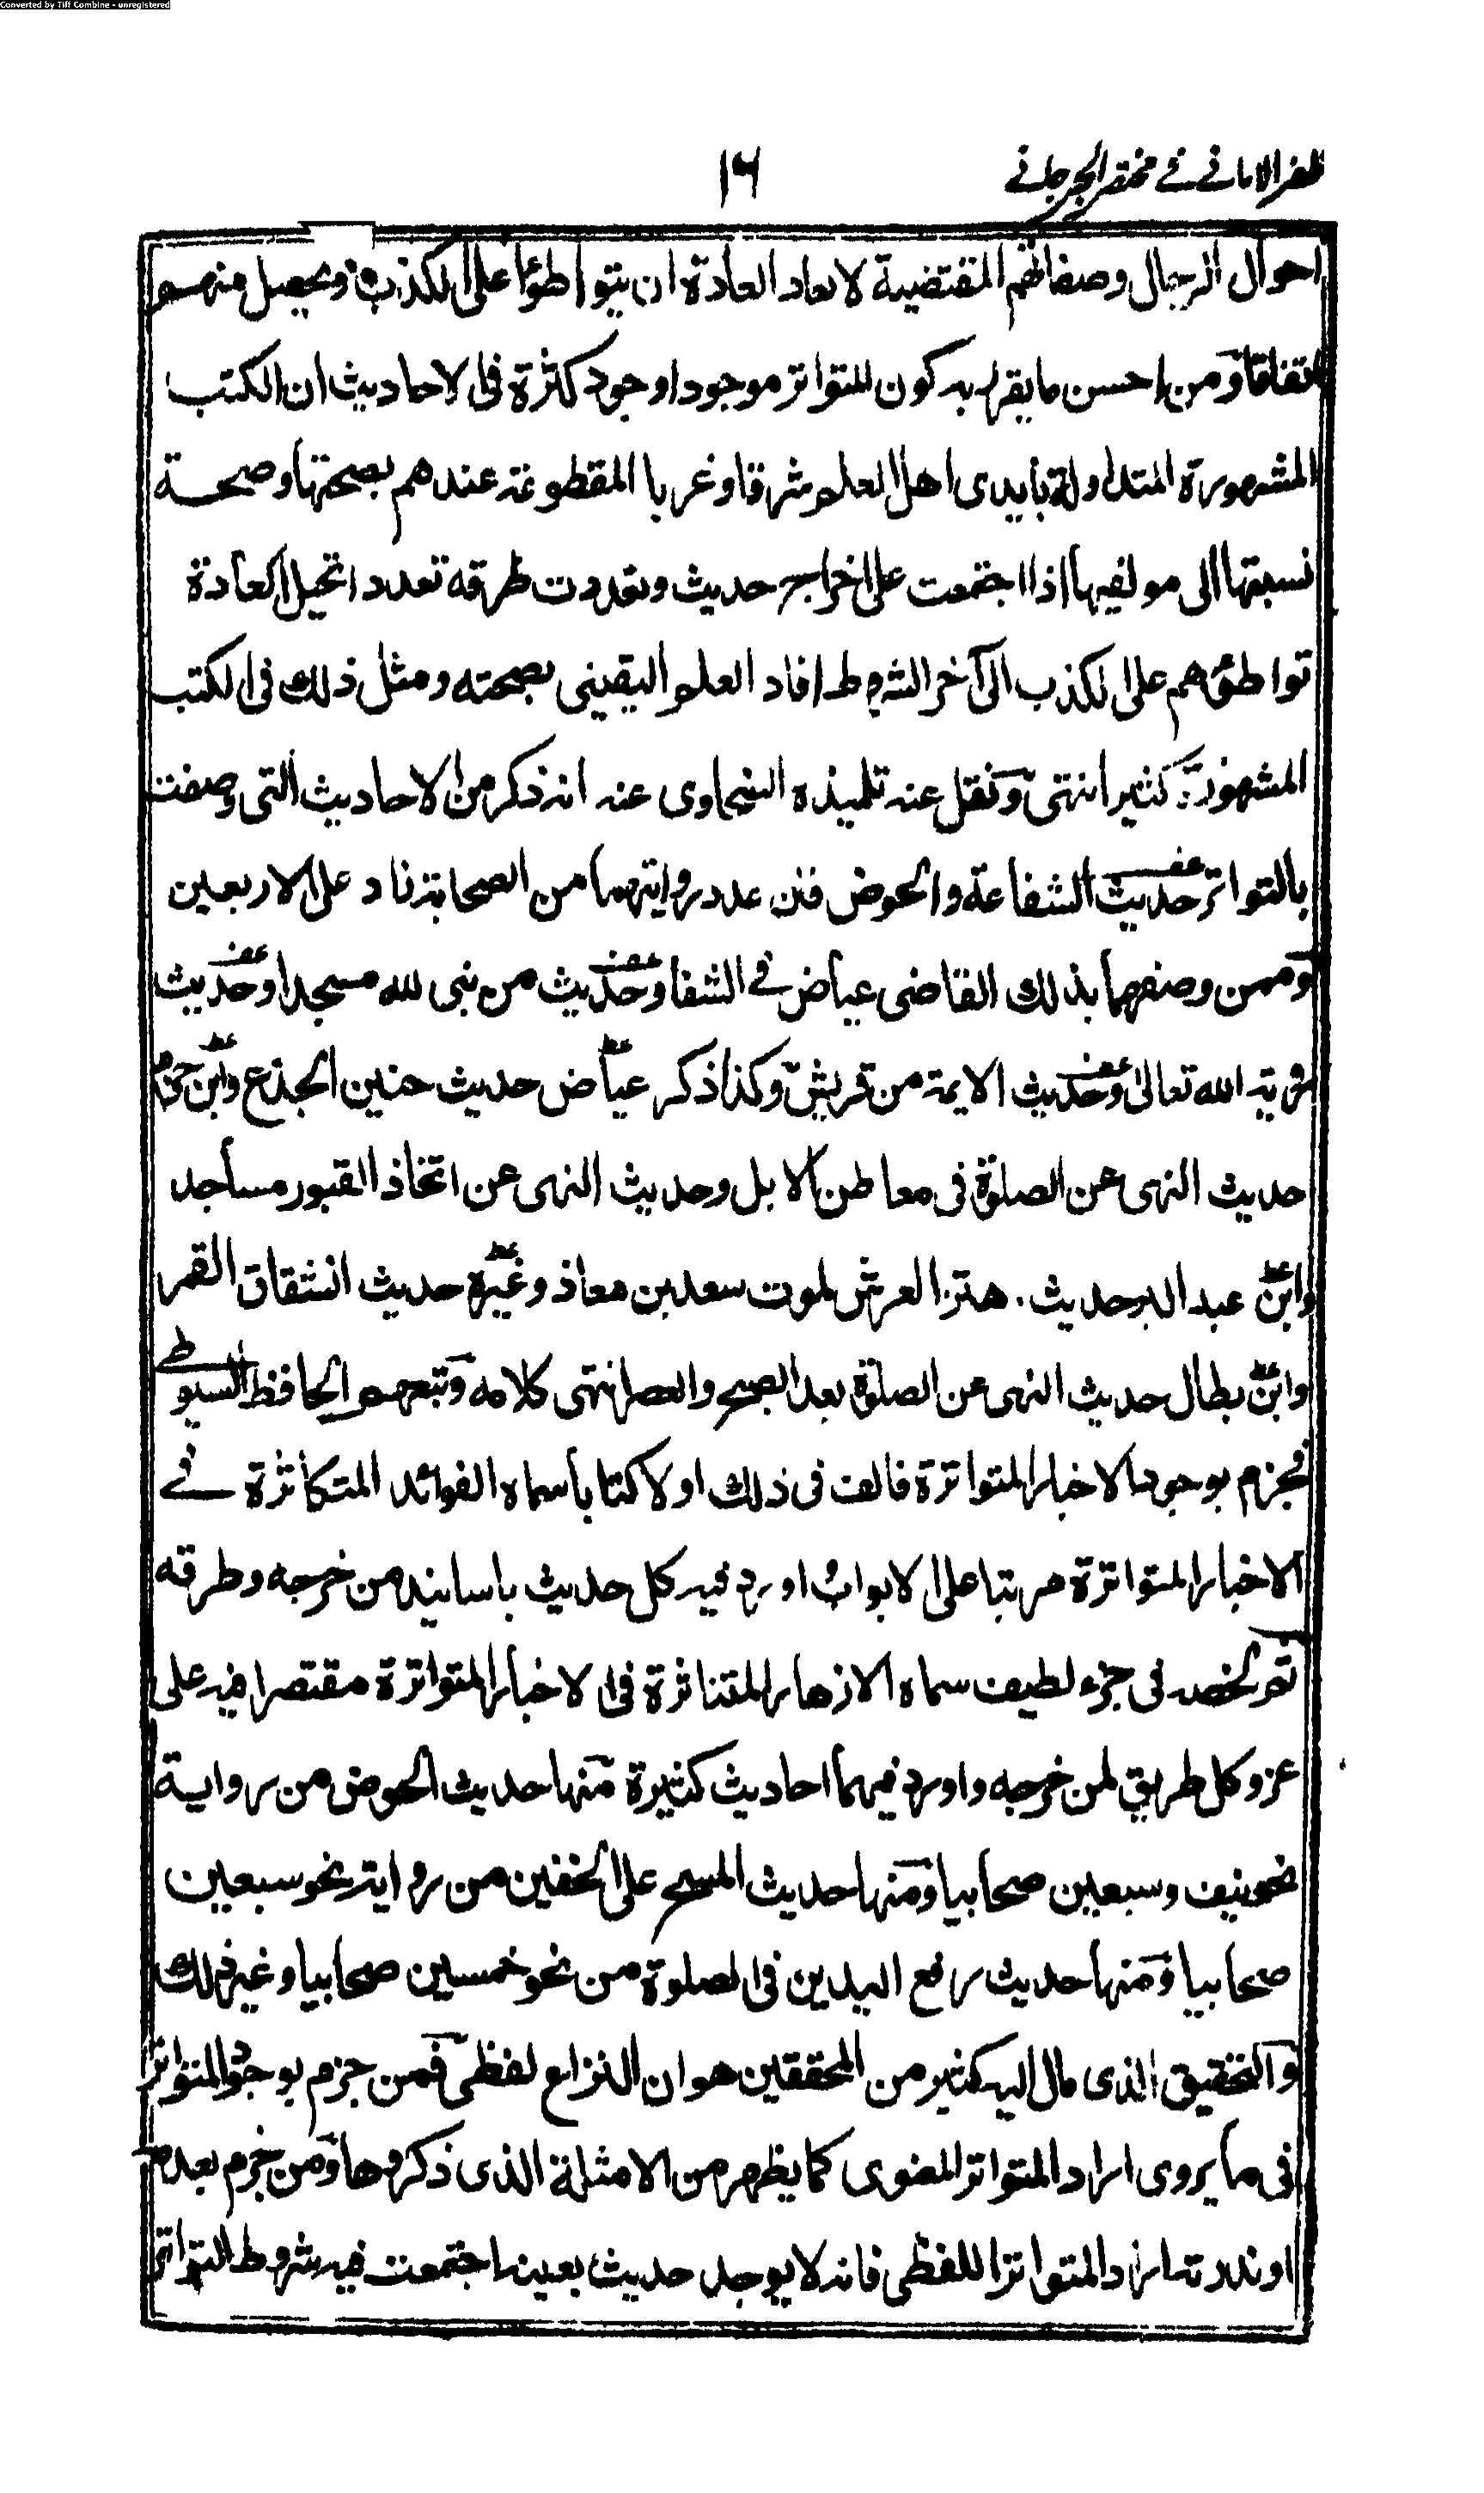 Converted by Tiff Combine - unregistered
ظفر الامانے فے مختصر الجرجانے
١٦
احوال الرجال وصفاتهم المقتضية لابعاد العادة ان يتواطؤا على الكذب ويحصل منهم
اتفاقا ومن احسن ما يقرر به كون المتواتر موجودا وجود كثرة فى الاحاديث ان الكتب
المشهورة المتداولة بايدى اهل العلم شرقا وغربا المقطوعة عندهم بصحتها وصحة
نسبتها الى مولفيها اذا اجتمعت على اخراج حديث وتعددت طرقه تعددا تحيل العادة
تواطئهم على الكذب الى آخر الشروط افاد العلم اليقينى بصحته ومثل ذلك فى الكتب
المشهورة كثير انتهى ونقل عنه تلميذه السخاوى عنه انه ذكر من الاحاديث التى وصفت
بالتواتر حديث الشفاعة والحوض فان عدد رواتهما من الصحابة زاد على الاربعين
وممن وصفهما بذلك القاضى عياض فے الشفا وحديث من بنى لله مسجدا وحديث
روية الله تعالى وحديث الايمة من قريش وكذا ذكر عياض حديث حنين الجذع وابن حزم
حديث النهى عن الصلوة فى معاطن الابل وحديث النهى عن اتخاذ القبور مساجد
وابن عبد البر حديث اهتز العرش لموت سعد بن معاذ وغيره حديث انشقاق القمر
وابن بطال حديث النهى عن الصلوة بعد الصبح والعصر انتهى كلامه وتبعهم الحافظ السيوطے
فجزم بوجود الاخبار المتواترة فالف فى ذلك اولا كتابا سماه الفوائد المتكاثرة فے
الاخبار المتواترة مرتبا على الابواب اورد فيه كل حديث باسانيد من خرجه وطرقه
ثم لخصه فى جزء لطيف سماه الازهار المتناثرة فى الاخبار المتواترة مقتصرا فيه على
عزو كل طريق لمن خرجه واورد فيهما احاديث كثيرة منها حديث الحوض من رواية
نحو نيف وسبعين صحابيا ومنها حديث المسح على الخفين من رواية نحو سبعين
صحابيا ومنها حديث رفع اليدين فى الصلوة من نحو خمسين صحابيا وغير ذلك
والتحقيق الذى مال اليه كثير من المحققين هو ان النزاع لفظى فمن جزم بوجود المتواتر
فى ما يروى اراد المتواتر المعنوى كما يظهر من الامثلة الذى ذكروها ومن جزم بعدمه
او ندرته اراد المتواتر اللفظى فانه لا يوجد حديث بعينه اجتمعت فيه شروط التواتر